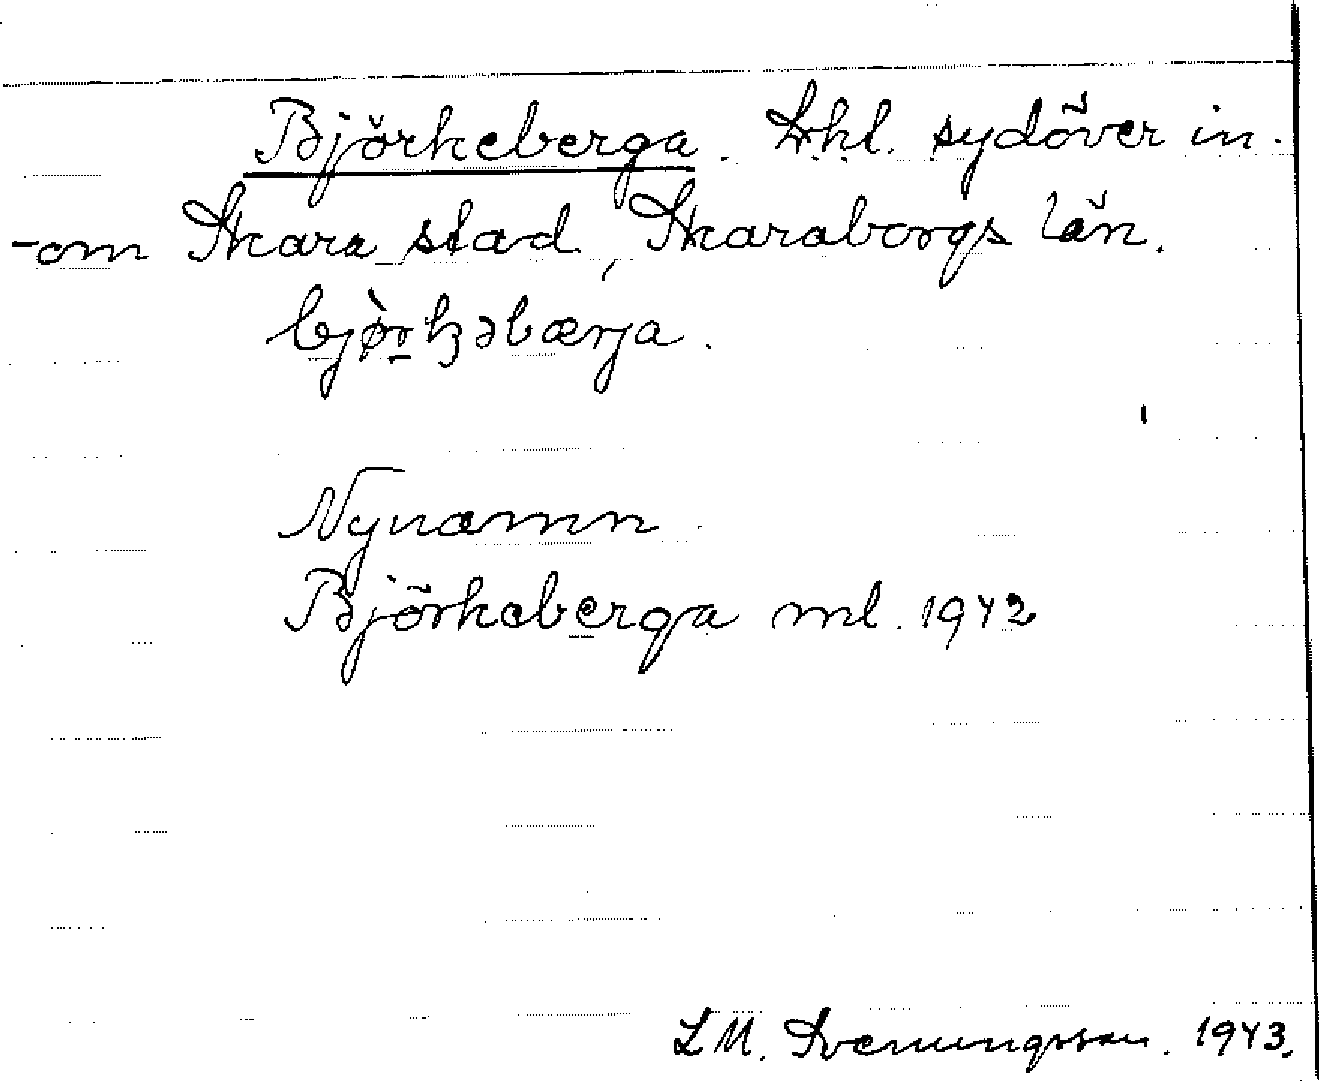 Björkeberga. Lhl. sydöver in-
-om Skara stad, Skaraborgs län.
bjø̀rkəbærja.
Nynamn
Björkeberga ml. 1942
LM. Svenungsson. 1943.